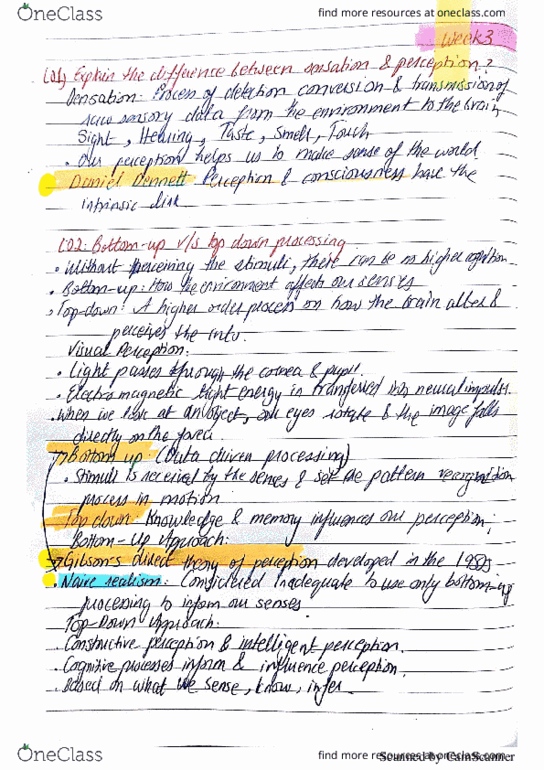 OneClass
find more resources at oneclass.com
Week 3
LO1) Explain the difference between sensation & perception?
Sensation: Process of detection conversion & transmission of
raw sensory data from the environment to the brain
Sight, Hearing, Taste, Smell, Touch
• Our perception helps us to make sense of the world
Daniel Dennett Perception & consciousness have the
intrinsic link
LO2: Bottom-up v/s top down processing
• Without perceiving the stimuli, there can be no higher cognition.
• Bottom-up: How the environment affects our senses
• Top-down: A higher order process on how the brain &
perceives the info.
Visual Perception:
• Light passes through the cornea & pupil.
• Electromagnetic light energy is transferred into neural impulses.
• When we look at an object, our eyes rotate & the image falls
directly on the fovea.
Bottom up: (Data driven processing)
• Stimuli is received by the senses & set the pattern recognition
process in motion
Top down: Knowledge & memory influences our perception;
Bottom-Up Approach:
Gibson's direct theory of perception developed in the 1950s
• Naive realism: Considered inadequate to use only bottom-up
processing to inform our senses
Top-Down Approach:
• Constructive perception & intelligent perception.
• Cognitive processes inform & influence perception.
• Based on what we sense, know, infer.
OneClass
find more resources at oneclass.com
Scanned by CamScanner